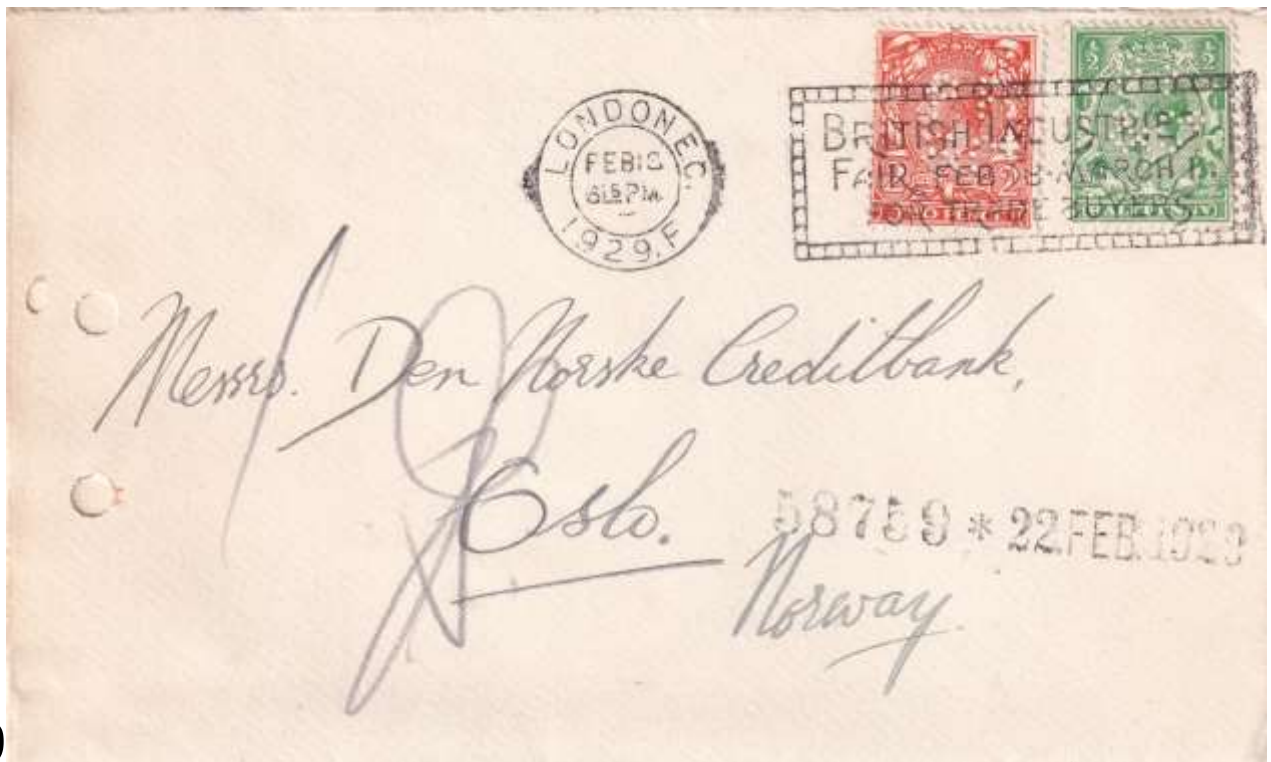 LONDON E.C.
6 15 PM
1929. F
BRITISH INDUSTRIES
FAIR, FEB 18-MARCH 1.
FOR TRADE BUYERS
Messrs. Den Norske Creditbank,
Oslo.
58759 * 22 FEB. 1929
Norway.